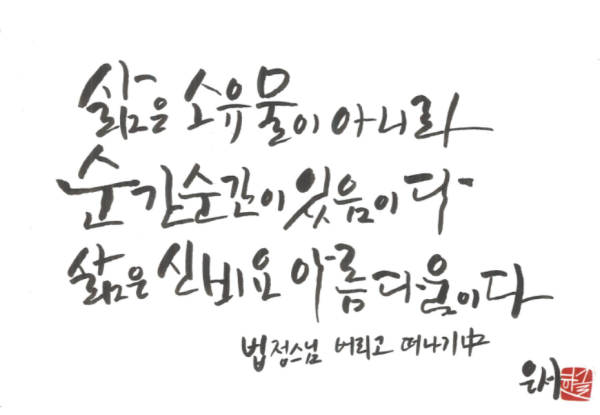 삶은 소유물이 아니라
순간순간이 있음이다
삶은 신비요 아름다움이다
법정스님 버리고 떠나기中
은서